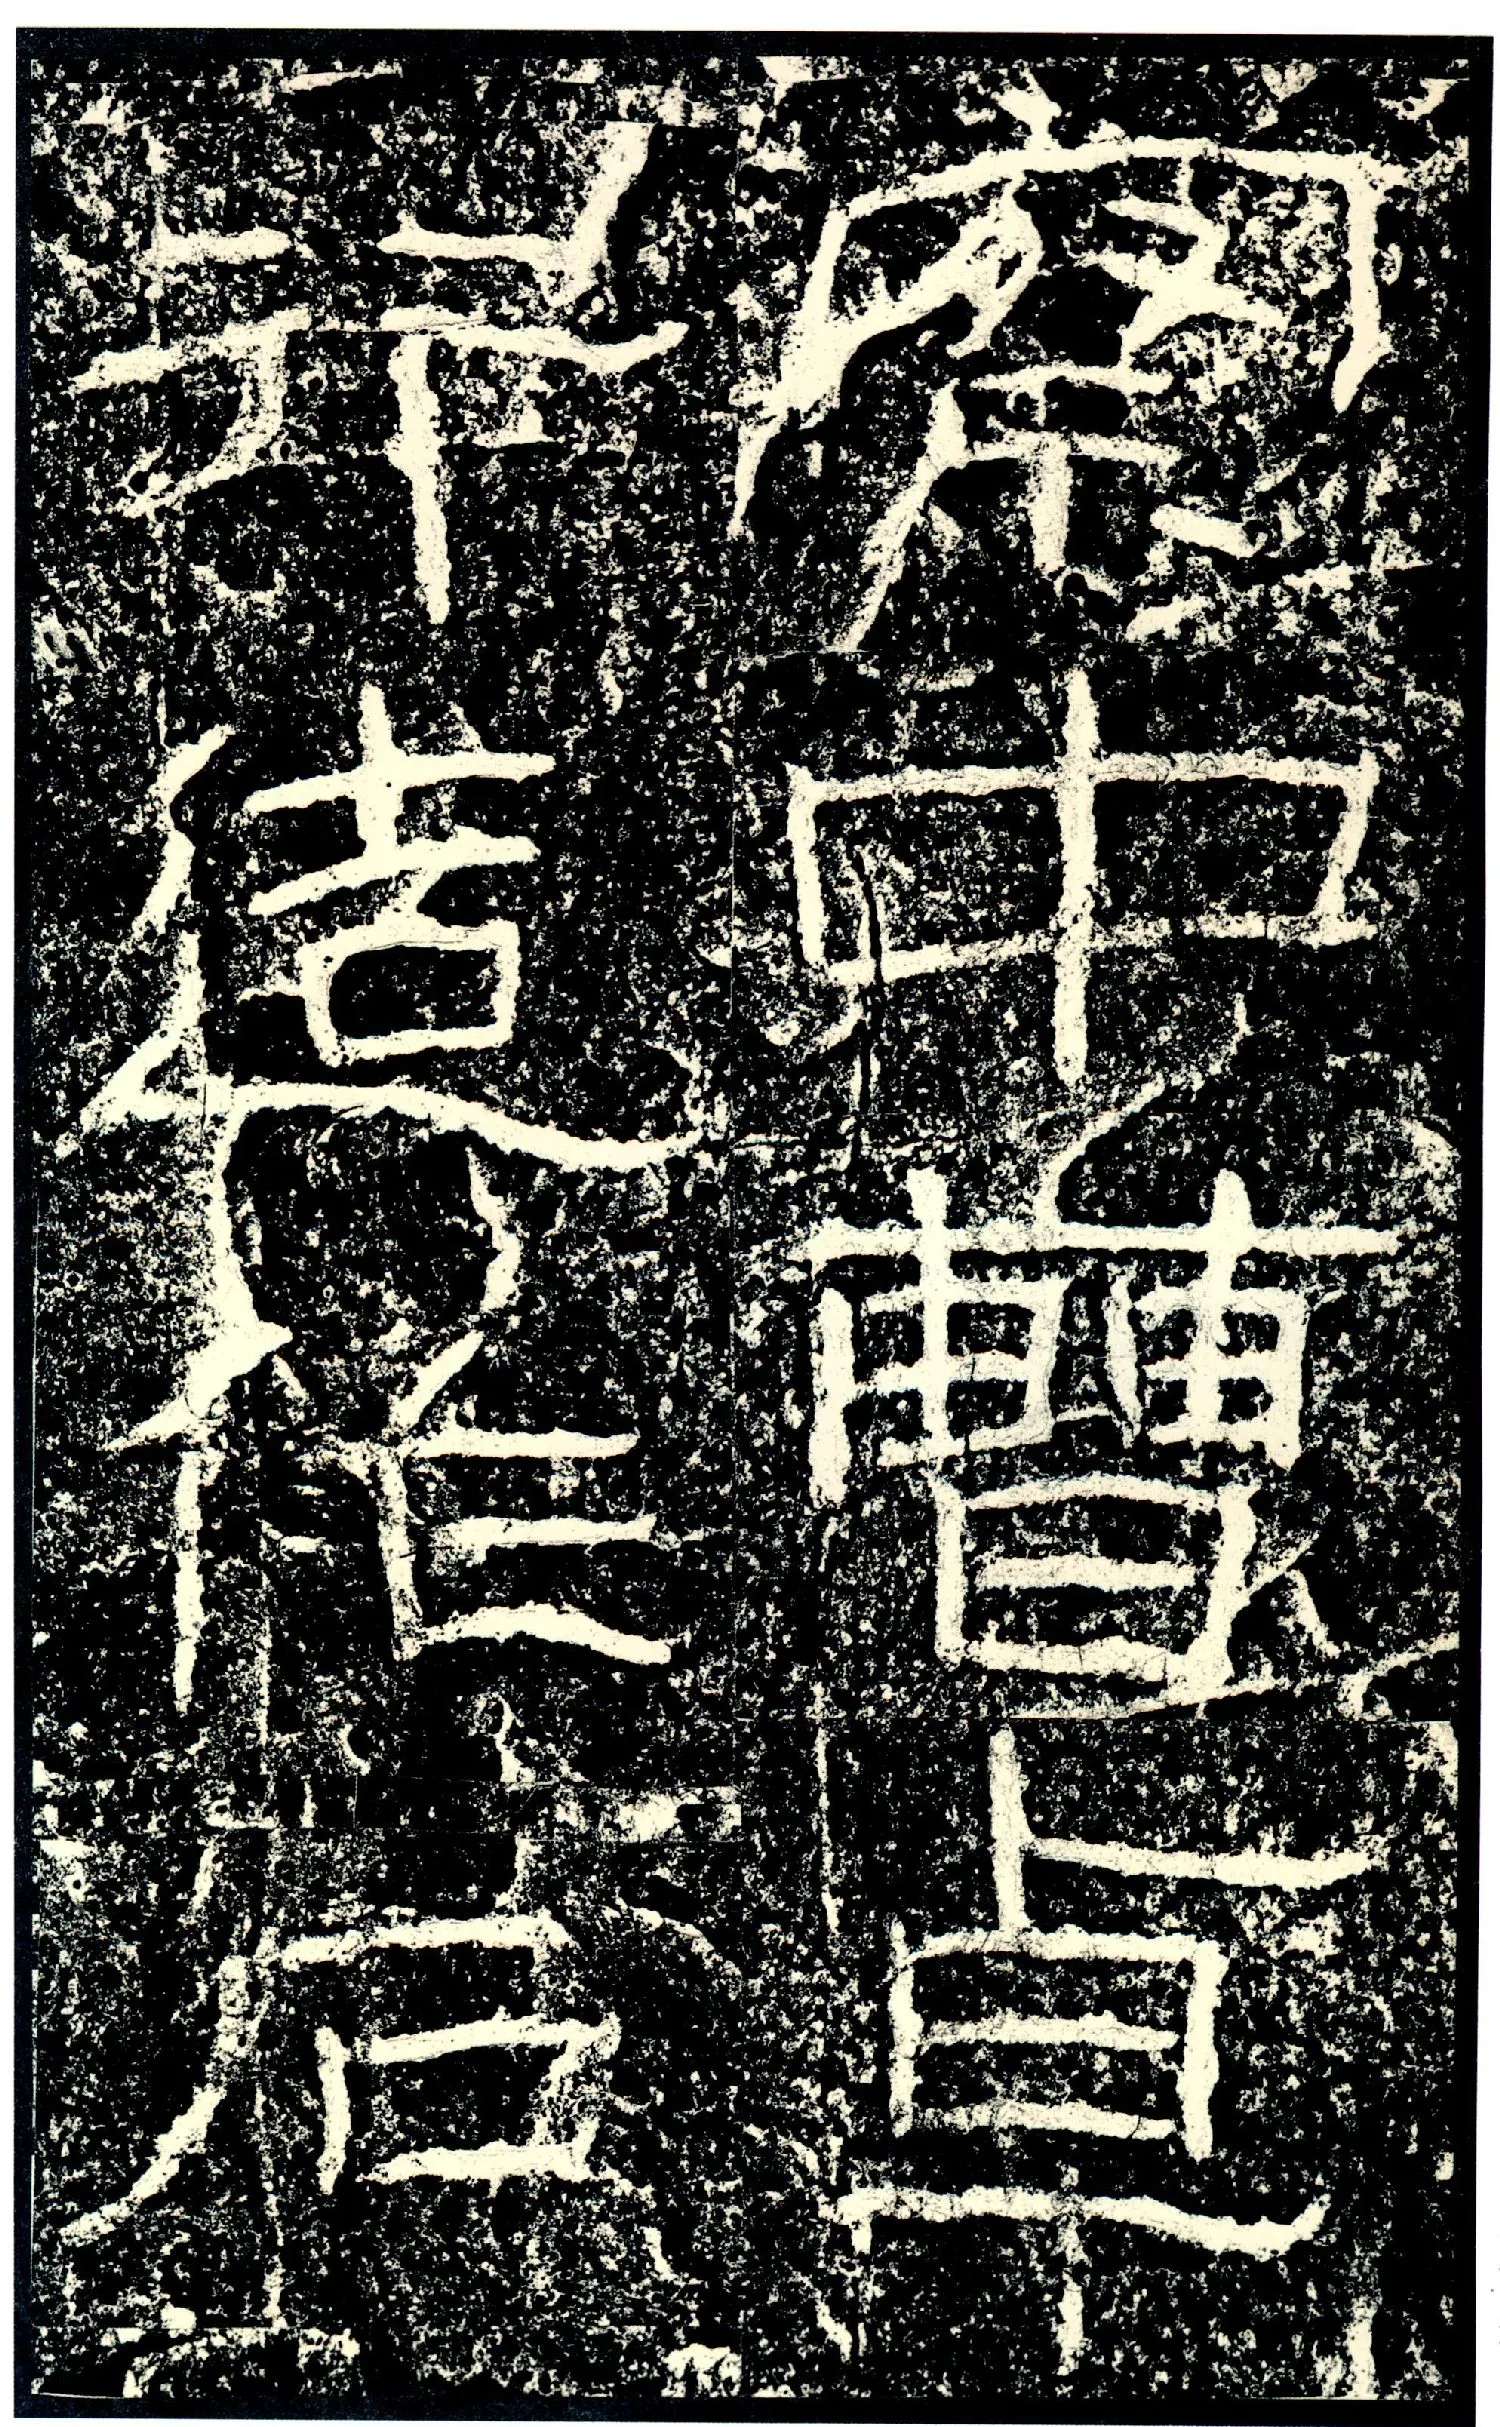 察中曹卓
行造作石